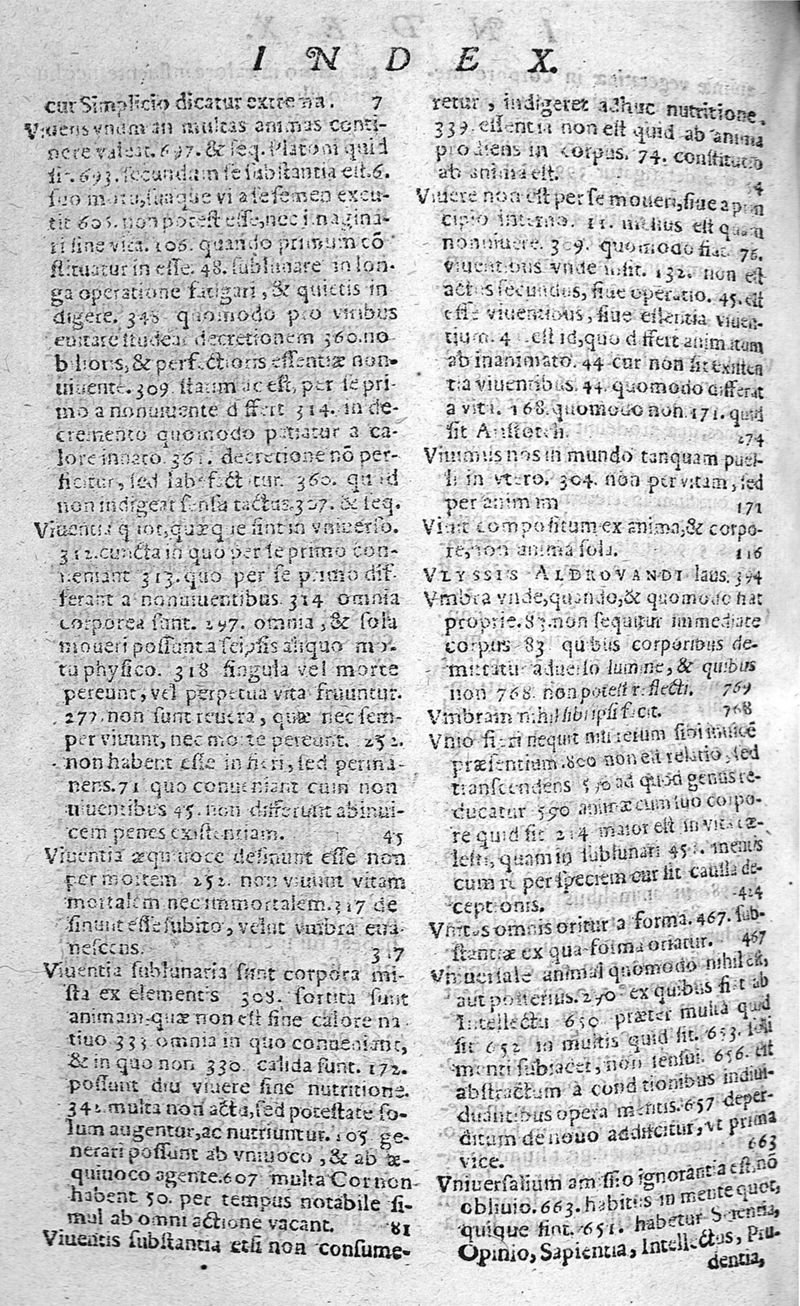 INDEX.
cur Simplicio dicatur extrema. 7
Viuens vnum an multas animas conti-
nere valeat. 697. & seq. Platoni quid
sit. 693. secundum se substantia est. 6.
suo motu, suaque vi a se semen excu-
tit 605. non potest esse, nec imagina-
ri sine vita. 106. quando primum cō
stituatur in esse. 48. sublunare in lon-
ga operatione fatigari, & quietis in
digere. 348 quomodo pro viribus
euitare studeat decretionem 360. no
bilioris, & perfectioris essentiæ non-
uiuente. 309. statum ac est, per se pri-
mo a nonuiuente differt 314. in de-
cremento quomodo patiatur a ca-
lore innato. 361. decretione nō per-
ficitur, sed labefactatur. 360. quod
non indigeat sensu tactus. 307. & seq.
Viuentia quot, quæque sint in vniuerso.
312. cuncta in quo per se primo con-
ueniant 313. quo per se primo dif-
ferant a nonuiuentibus. 314 omnia
corporea sunt. 297. omnia, & sola
moueri possunt a seipsis aliquo mo-
tu physico. 318 singula vel morte
pereunt, vel perpetua vita fruuntur.
277. non sunt reuera, quæ nec sem-
per viuunt, nec morte pereunt. 252.
non habent esse in fieri, sed perma-
nens. 71 quo conueniant cum non
uiuentibus 45. non differunt abinui-
cem penes existentiam. 45
Viuentia æquiuoce desinunt esse non
per mortem 252. non viuunt vitam
mortalem nec immortalem. 317 de
sinunt esse subito, velut vmbra eua-
nescens. 317
Viuentia sublunaria sunt corpora mi-
sta ex elementis 308. sortita sunt
animam quæ non est sine calore na-
tiuo 333 omnia in quo conueniant,
& in quo non 330. calida sunt. 172.
possunt diu viuere sine nutritione.
342. multa non actu, sed potestate so-
lum augentur, ac nutriuntur. 105 ge-
nerari possunt ab vniuoco, & ab æ-
quiuoco agente. 607 multa Cor non
habent 50. per tempus notabile si-
mul ab omni actione vacant. 81
Viuentis substantia etsi non consume-
retur, indigeret adhuc nutritione.
339. essentia non est quid ab anima
prodiens in corpus. 74. constitutio
ab anima est. 54
Viuere non est per se moueri, siue a prin
cipio interno. 11. melius est quam
nonuiuere. 309. quomodo fiat 76.
viuentibus vnde insit. 132. non est
actus secundus, siue operatio. 45. est
esse viuentibus, siue essentia viuen-
tium. 4 est id, quo differt animatum
ab inanimato. 44 cur non sit existen
tia viuentibus. 44. quomodo differat
a vita. 168. quomodo non. 171. quid
sit Aristoteli. 174
Viuimus nos in mundo tanquam puel-
li in vtero. 304. non per vitam, sed
per animam 171
Viuit compositum ex anima, & corpo-
re, non anima sola. 116
VLYSSIS ALDROVANDI laus. 394
Vmbra vnde, quando, & quomodo fiat
proprie. 83. non sequitur immediate
corpus 83 quibus corporibus de-
mittatur aduerso lumine, & quibus
non 768. non potest reflecti. 769
Vmbram nihil sibi ipsi facit. 768
Vnio fieri nequit nisi rerum sibi inuicē
præsentium. 800 non ea relatio, sed
transcendens 570 ad quod genus re-
ducatur 590 animæ cum suo corpo-
re quid sit 214 maior est in vita cæ-
lesti, quam in sublunari 451. mentis
cum re per speciem cur sit caussa de-
ceptionis. 414
Vnitas omnis oritur a forma. 467. sub-
stantiæ ex qua forma oriatur. 467
Vniuersale animal quomodo nihil est,
aut posterius. 270 ex quibus fiat ab
Intellectu 650 præter multa quid
sit 652 in multis quid sit. 653. soli
menti subiacet, non sensui. 656. est
abstractum à conditionibus indiui-
duantibus opera mentis. 657 deper-
ditum de nouo addiscitur, vt prima
vice. 663
Vniuersalium amissio ignorantia est, nō
obliuio. 663. habitus in mente quot,
quique sint. 651. habetur Scientia,
Opinio, Sapientia, Intellectus, Pru-
dentia,